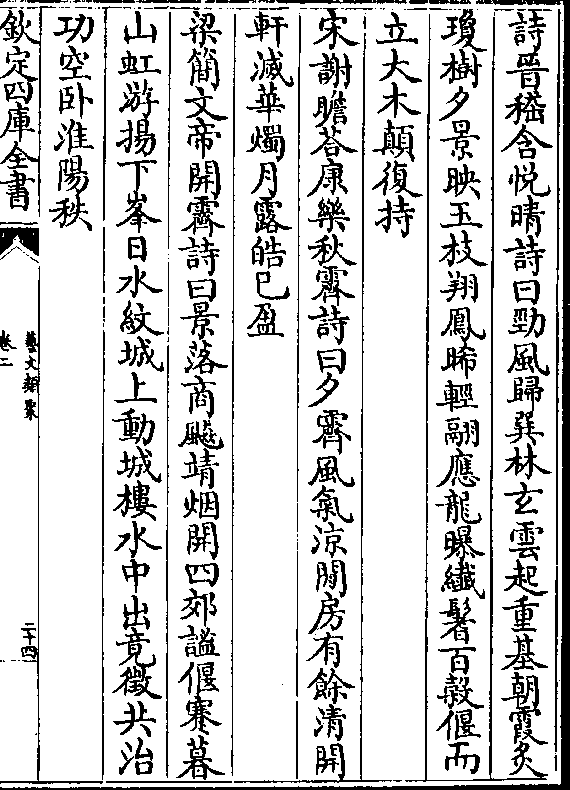 詩晉嵇含悅晴詩曰勁風歸巽林玄雲起重基朝霞炙
瓊樹夕景映玉枝翔鳳晞輕翮應龍曝纎鬐百榖偃而
立大木顛復持
宋謝瞻荅康樂秋霽詩曰夕霽風氣涼閒房有餘清開
軒滅華燭月露皓已盈
梁簡文帝開霽詩曰景落商飈靖烟開四郊謐偃蹇暮
山虹游揚下峯日水紋城上動城樓水中出竟徵共治
功空卧淮陽秩
欽定四庫全書
藝文類聚
卷二
二十四